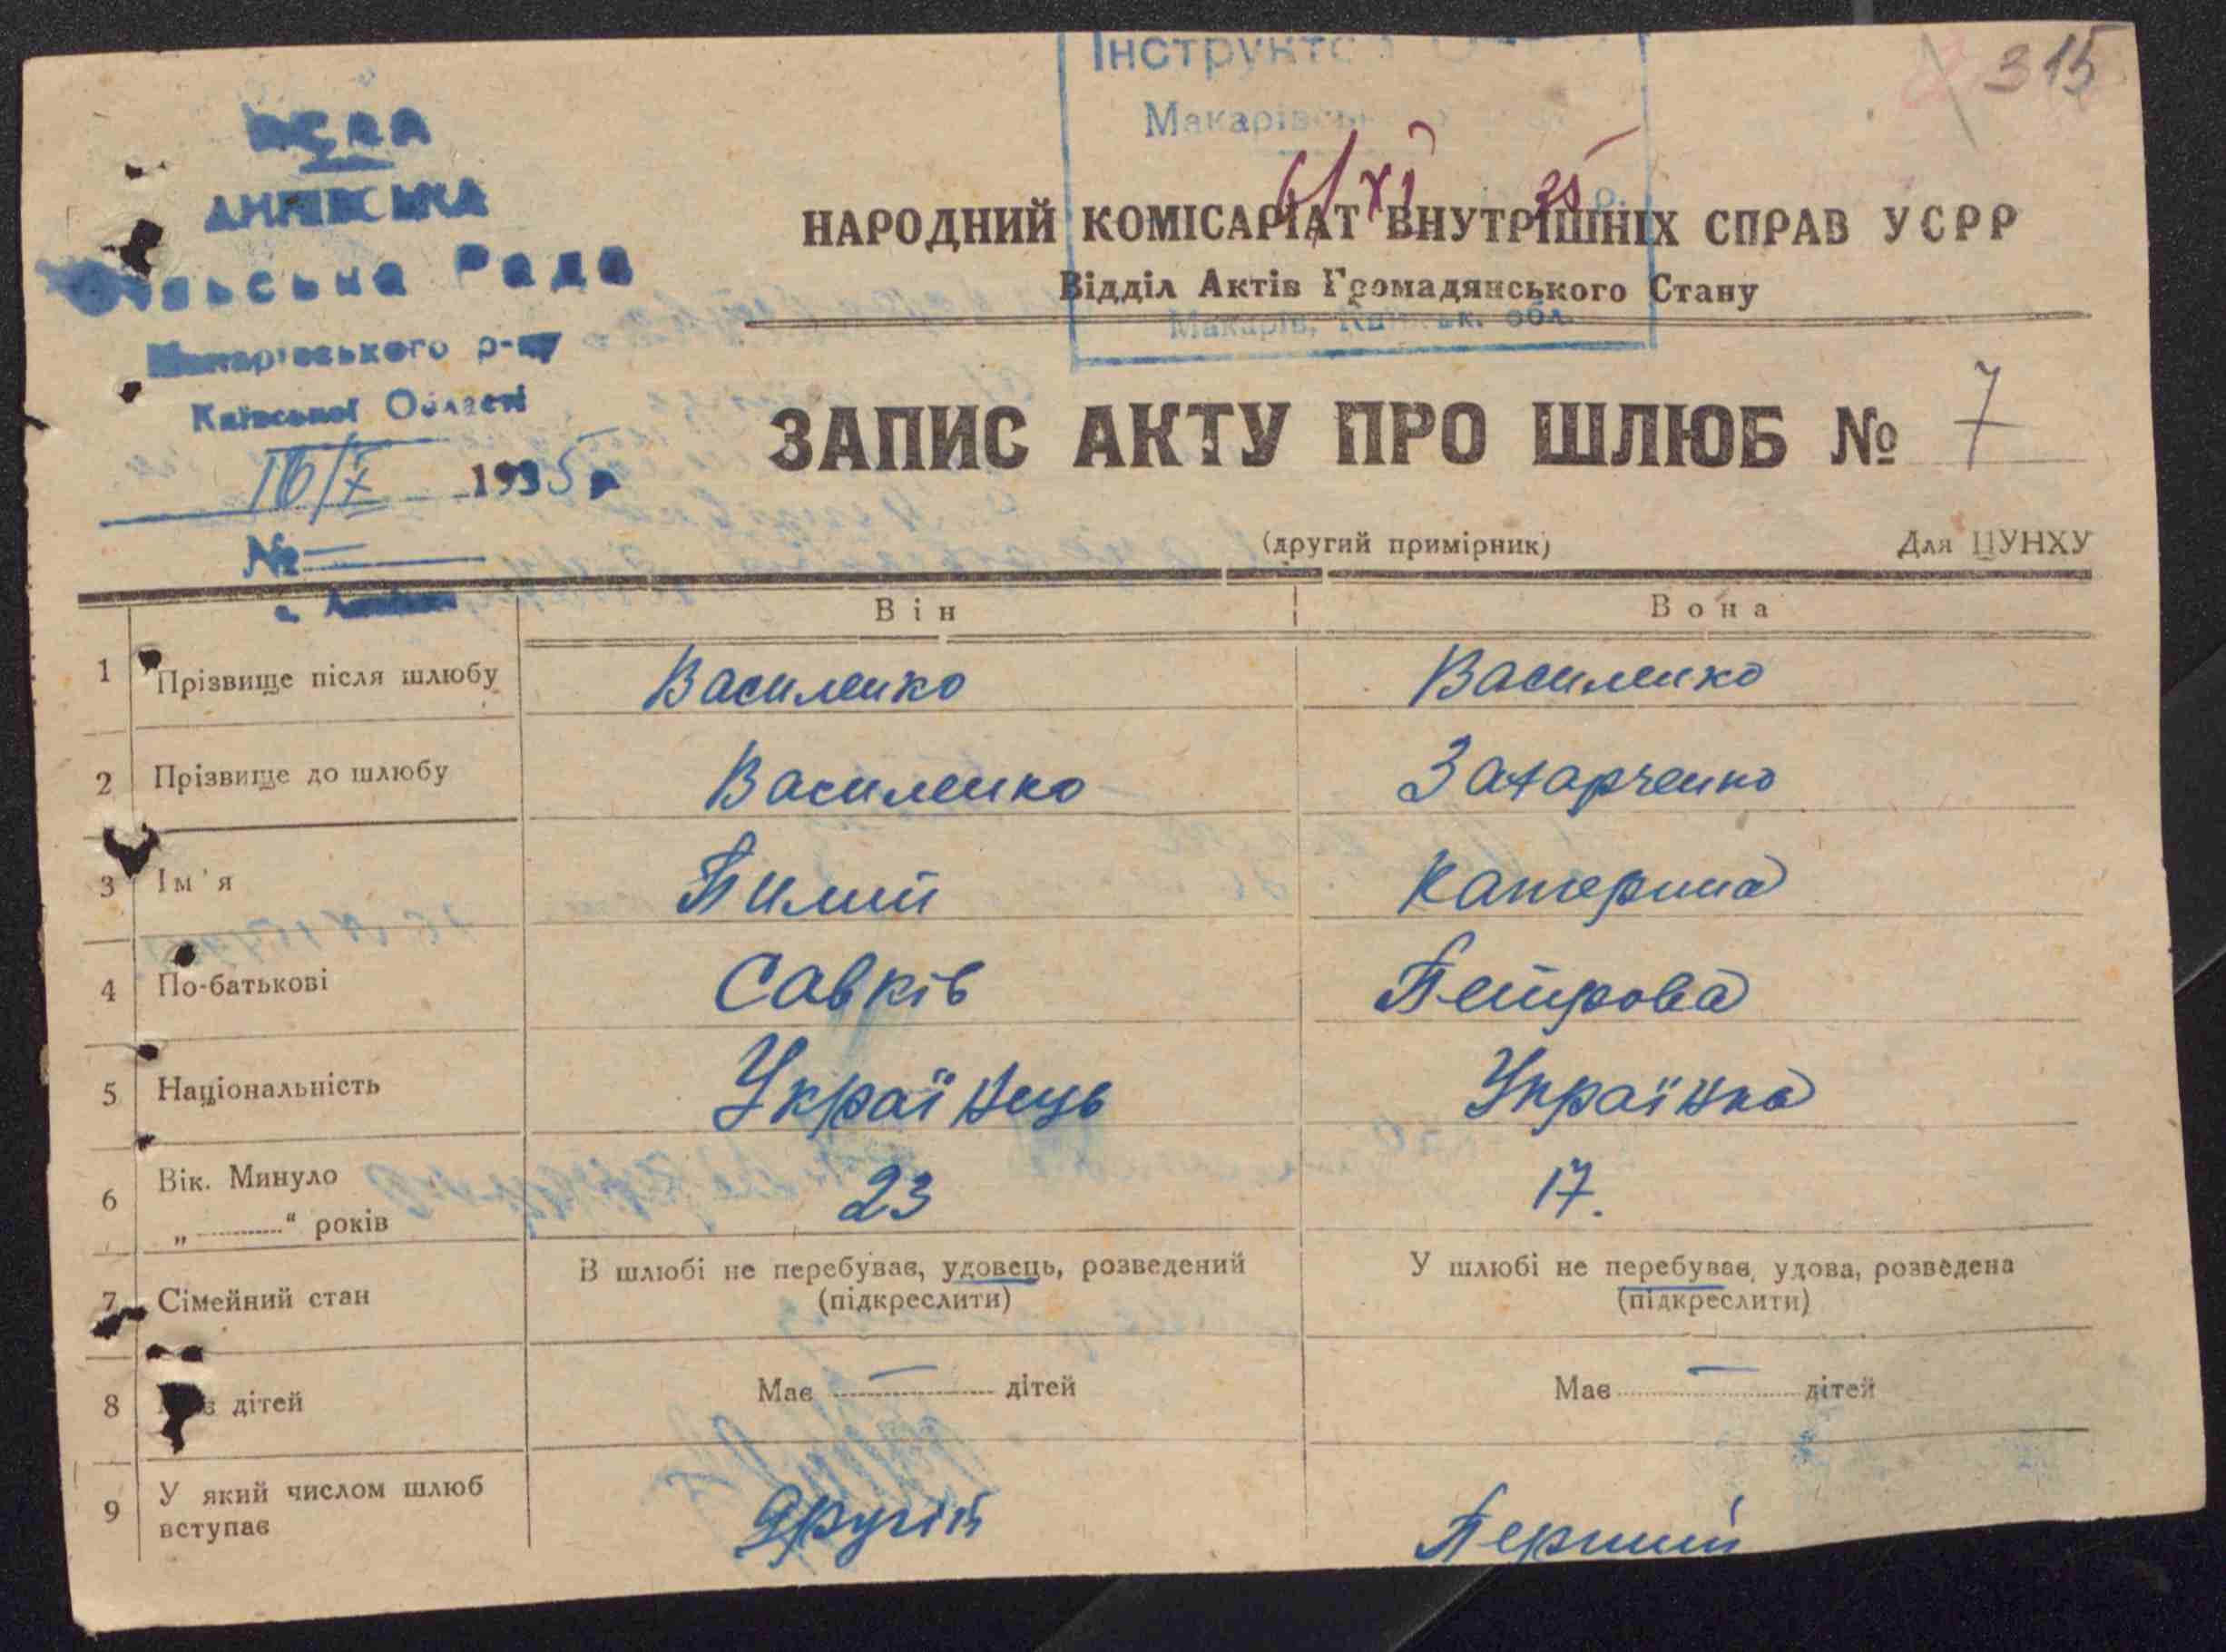 315
Інструкто
Макарівськ
УСРР
Рада
6/XI 35 р.
НАРОДНИЙ КОМІСАРІАТ ВНУТРІШНІХ СПРАВ УСРР
Відділ Актів Громадянського Стану
Макарів, Київськ. обл.
Макарівського р-ну
Київської Області
ЗАПИС АКТУ ПРО ШЛЮБ № 7
16/X 1935 р
№ —
(другий примірник) Для ЦУНХУ
Він Вона
1 Прізвище після шлюбу Василенко Василенко
2 Прізвище до шлюбу Василенко Захарченко
3 Ім'я Пилип Катерина
4 По-батькові Савків Петрова
5 Національність Українець Українка
6 Вік. Минуло 23 17.
„ “ років
7 Сімейний стан В шлюбі не перебував, удовець, розведений У шлюбі не перебував, удова, розведена
(підкреслити) (підкреслити)
8 дітей Має — дітей Має — дітей
9 У який числом шлюб Другій Перший
вступає